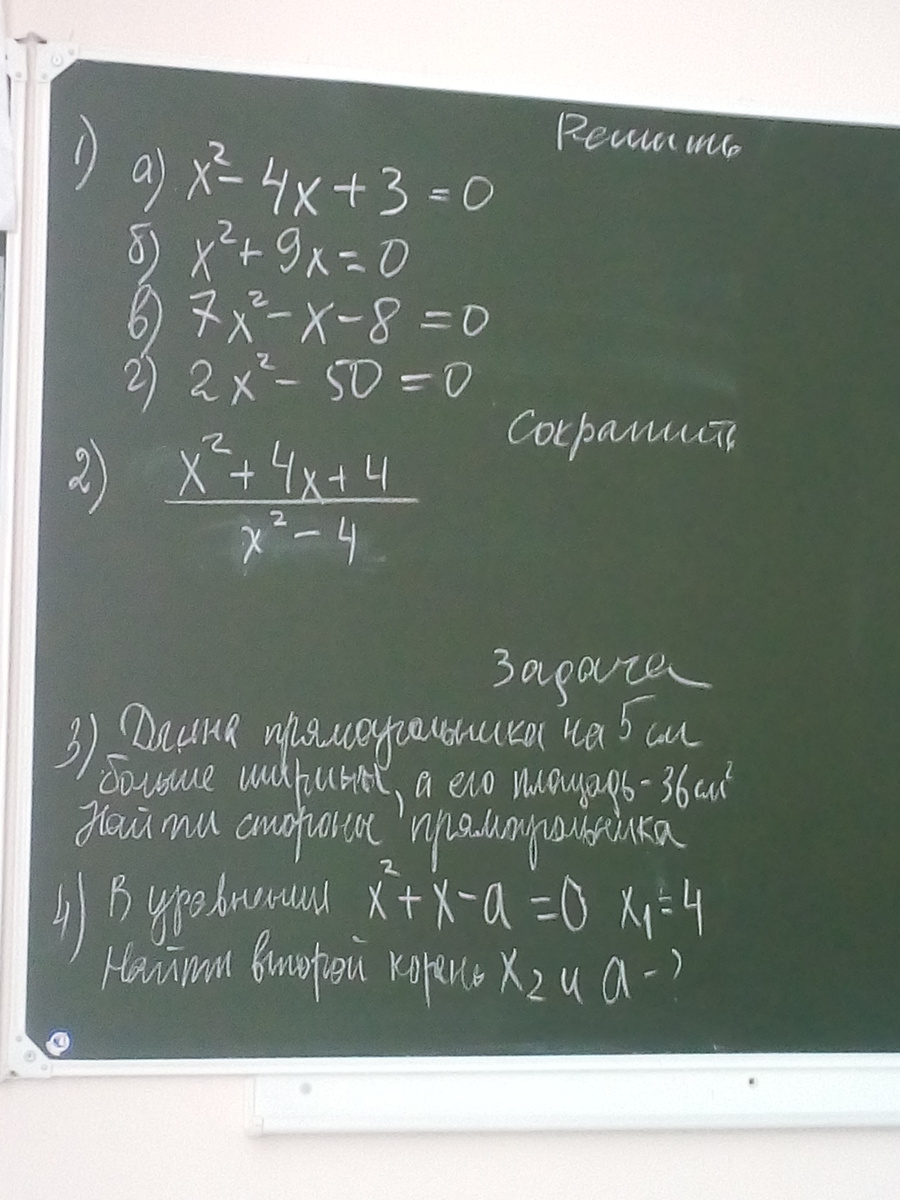 Решить
1) а) x² - 4x + 3 = 0
б) x² + 9x = 0
в) 7x² - x - 8 = 0
г) 2x² - 50 = 0
Сократить
2) (x² + 4x + 4) / (x² - 4)
Задача
3) Длина прямоугольника на 5 см
больше ширины, а его площадь - 36 см²
Найти стороны прямоугольника
4) В уравнении x² + x - a = 0 x₁ = 4
Найти второй корень x₂ и a - ?